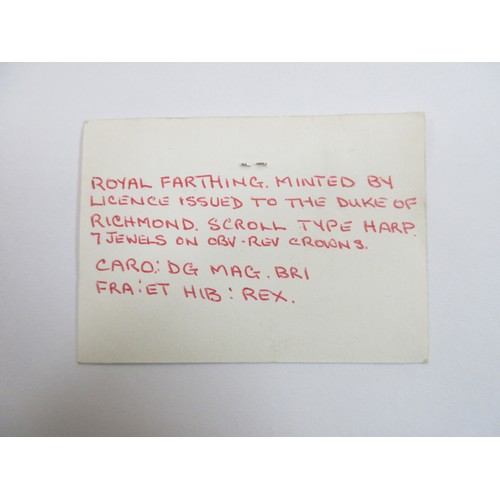 ROYAL FARTHING. MINTED BY
LICENCE ISSUED TO THE DUKE OF
RICHMOND. SCROLL TYPE HARP.
7 JEWELS ON OBV-REV CROWNS.
CARO: DG MAG. BRI
FRA: ET HIB: REX.